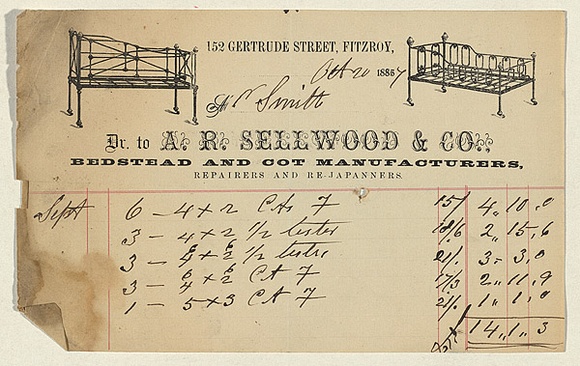 152 GERTRUDE STREET, FITZROY,
Oct 20 1887
Mr Smith
Dr. to A. R. SELLWOOD & CO.,
BEDSTEAD AND COT MANUFACTURERS,
REPAIRERS AND RE-JAPANNERS.
Sept 6 – 4 x 2 7 15/ 4 " 10 " 0
3 – 4 x 2 1/2 tester 18/6 2 " 15 " 6
3 – 1/2 tester 21/. 3 – 3 " 0
3 – 7 17/3 2 " 11 " 9
1 – 5 x 3 7 21/. 1 " 1 " 0
14 " 1 " 3